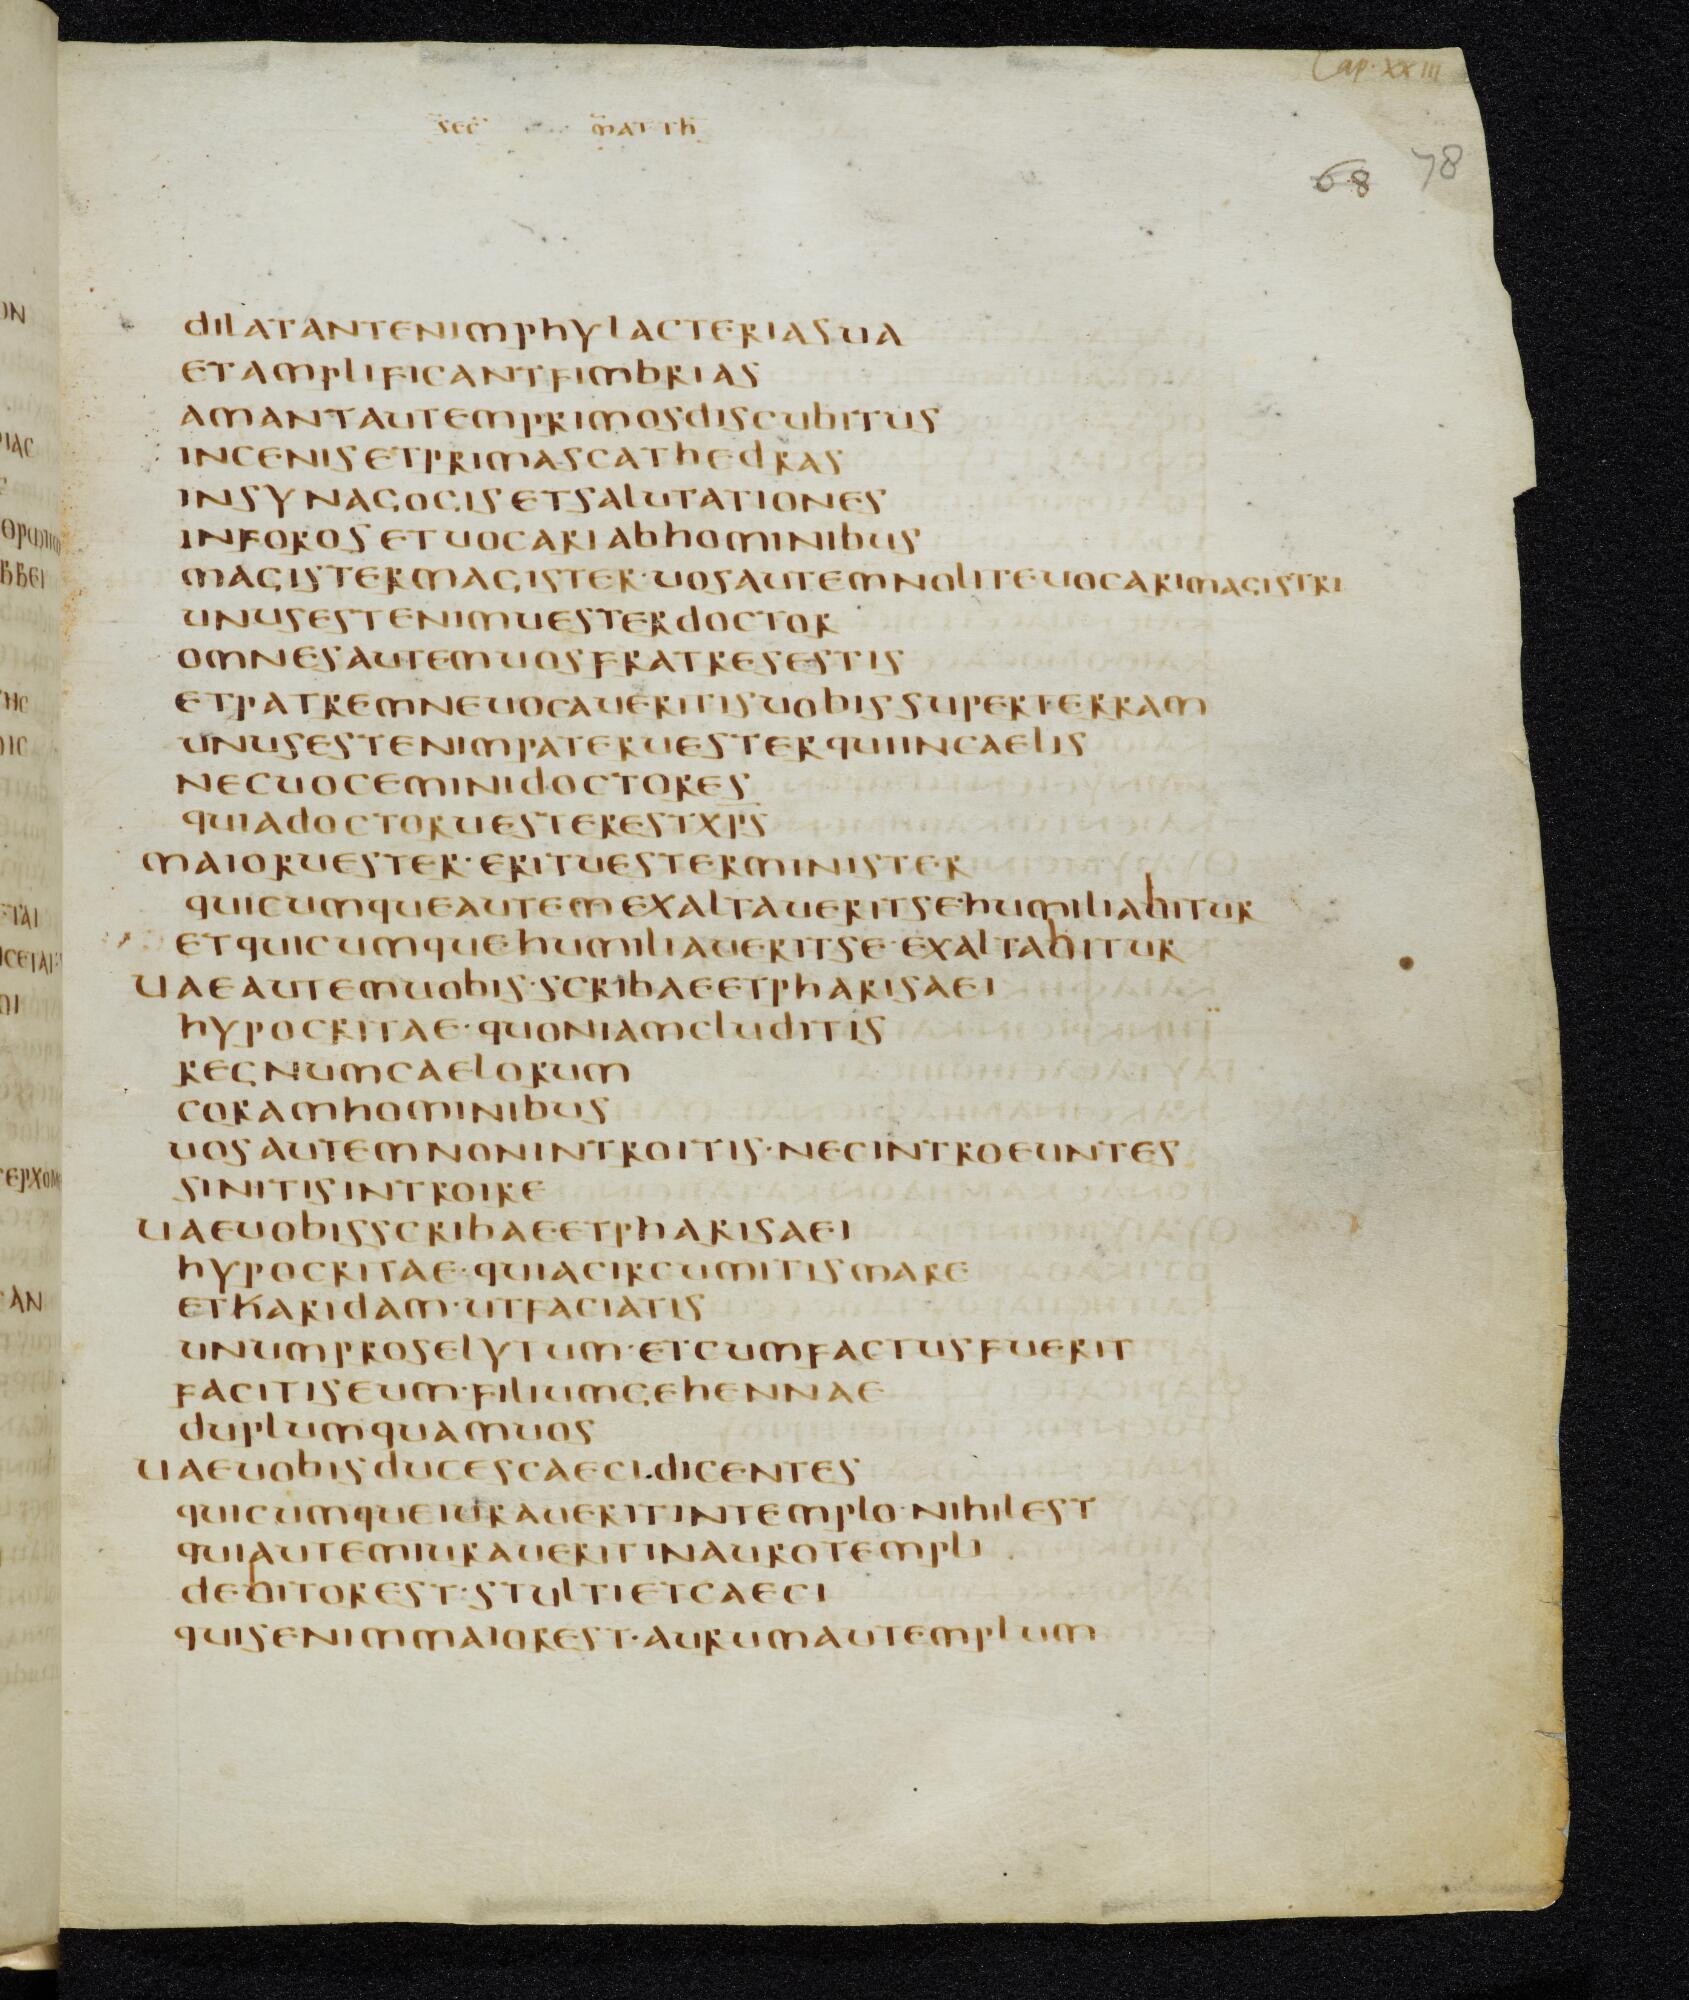 Cap. XXIII
sec matth
68 78
dilatantenimphylacteriasua
etamplificantfimbrias
amantautemprimosdiscubitus
incenisetprimascathedras
insynagogisetsalutationes
inforosetuocariabhominibus
magistermagister·uosautemnoliteuocarimagistri
unusestenimuesterdoctor
omnesautemuosfratresestis
etpatremneuocaueritisuobissuperterram
unusestenimpateruesterquiincaelis
necuoceminidoctores
quiadoctoruesterestxps
maioruester·erituesterminister
quicumqueautemexaltaueritse·humiliabitur
etquicumquehumiliaueritse·exaltabitur
uaeautemuobis·scribaeetpharisaei
hypocritae·quoniamcluditis
regnumcaelorum
coramhominibus
uosautemnonintroitis·necintroeuntes
sinitisintroire
uaeuobisscribaeetpharisaei
hypocritae·quiacircumitismare
etharidam·utfaciatis
unumproselytum·etcumfactusfuerit
facitiseum·filiumgehennae
duplumquamuos
uaeuobisducescaeci·dicentes
quicumqueiuraueritintemplo·nihilest
quiautemiuraueritinaurotempli
debitorest·stultietcaeci
quisenimmaiorest·aurumautemplum